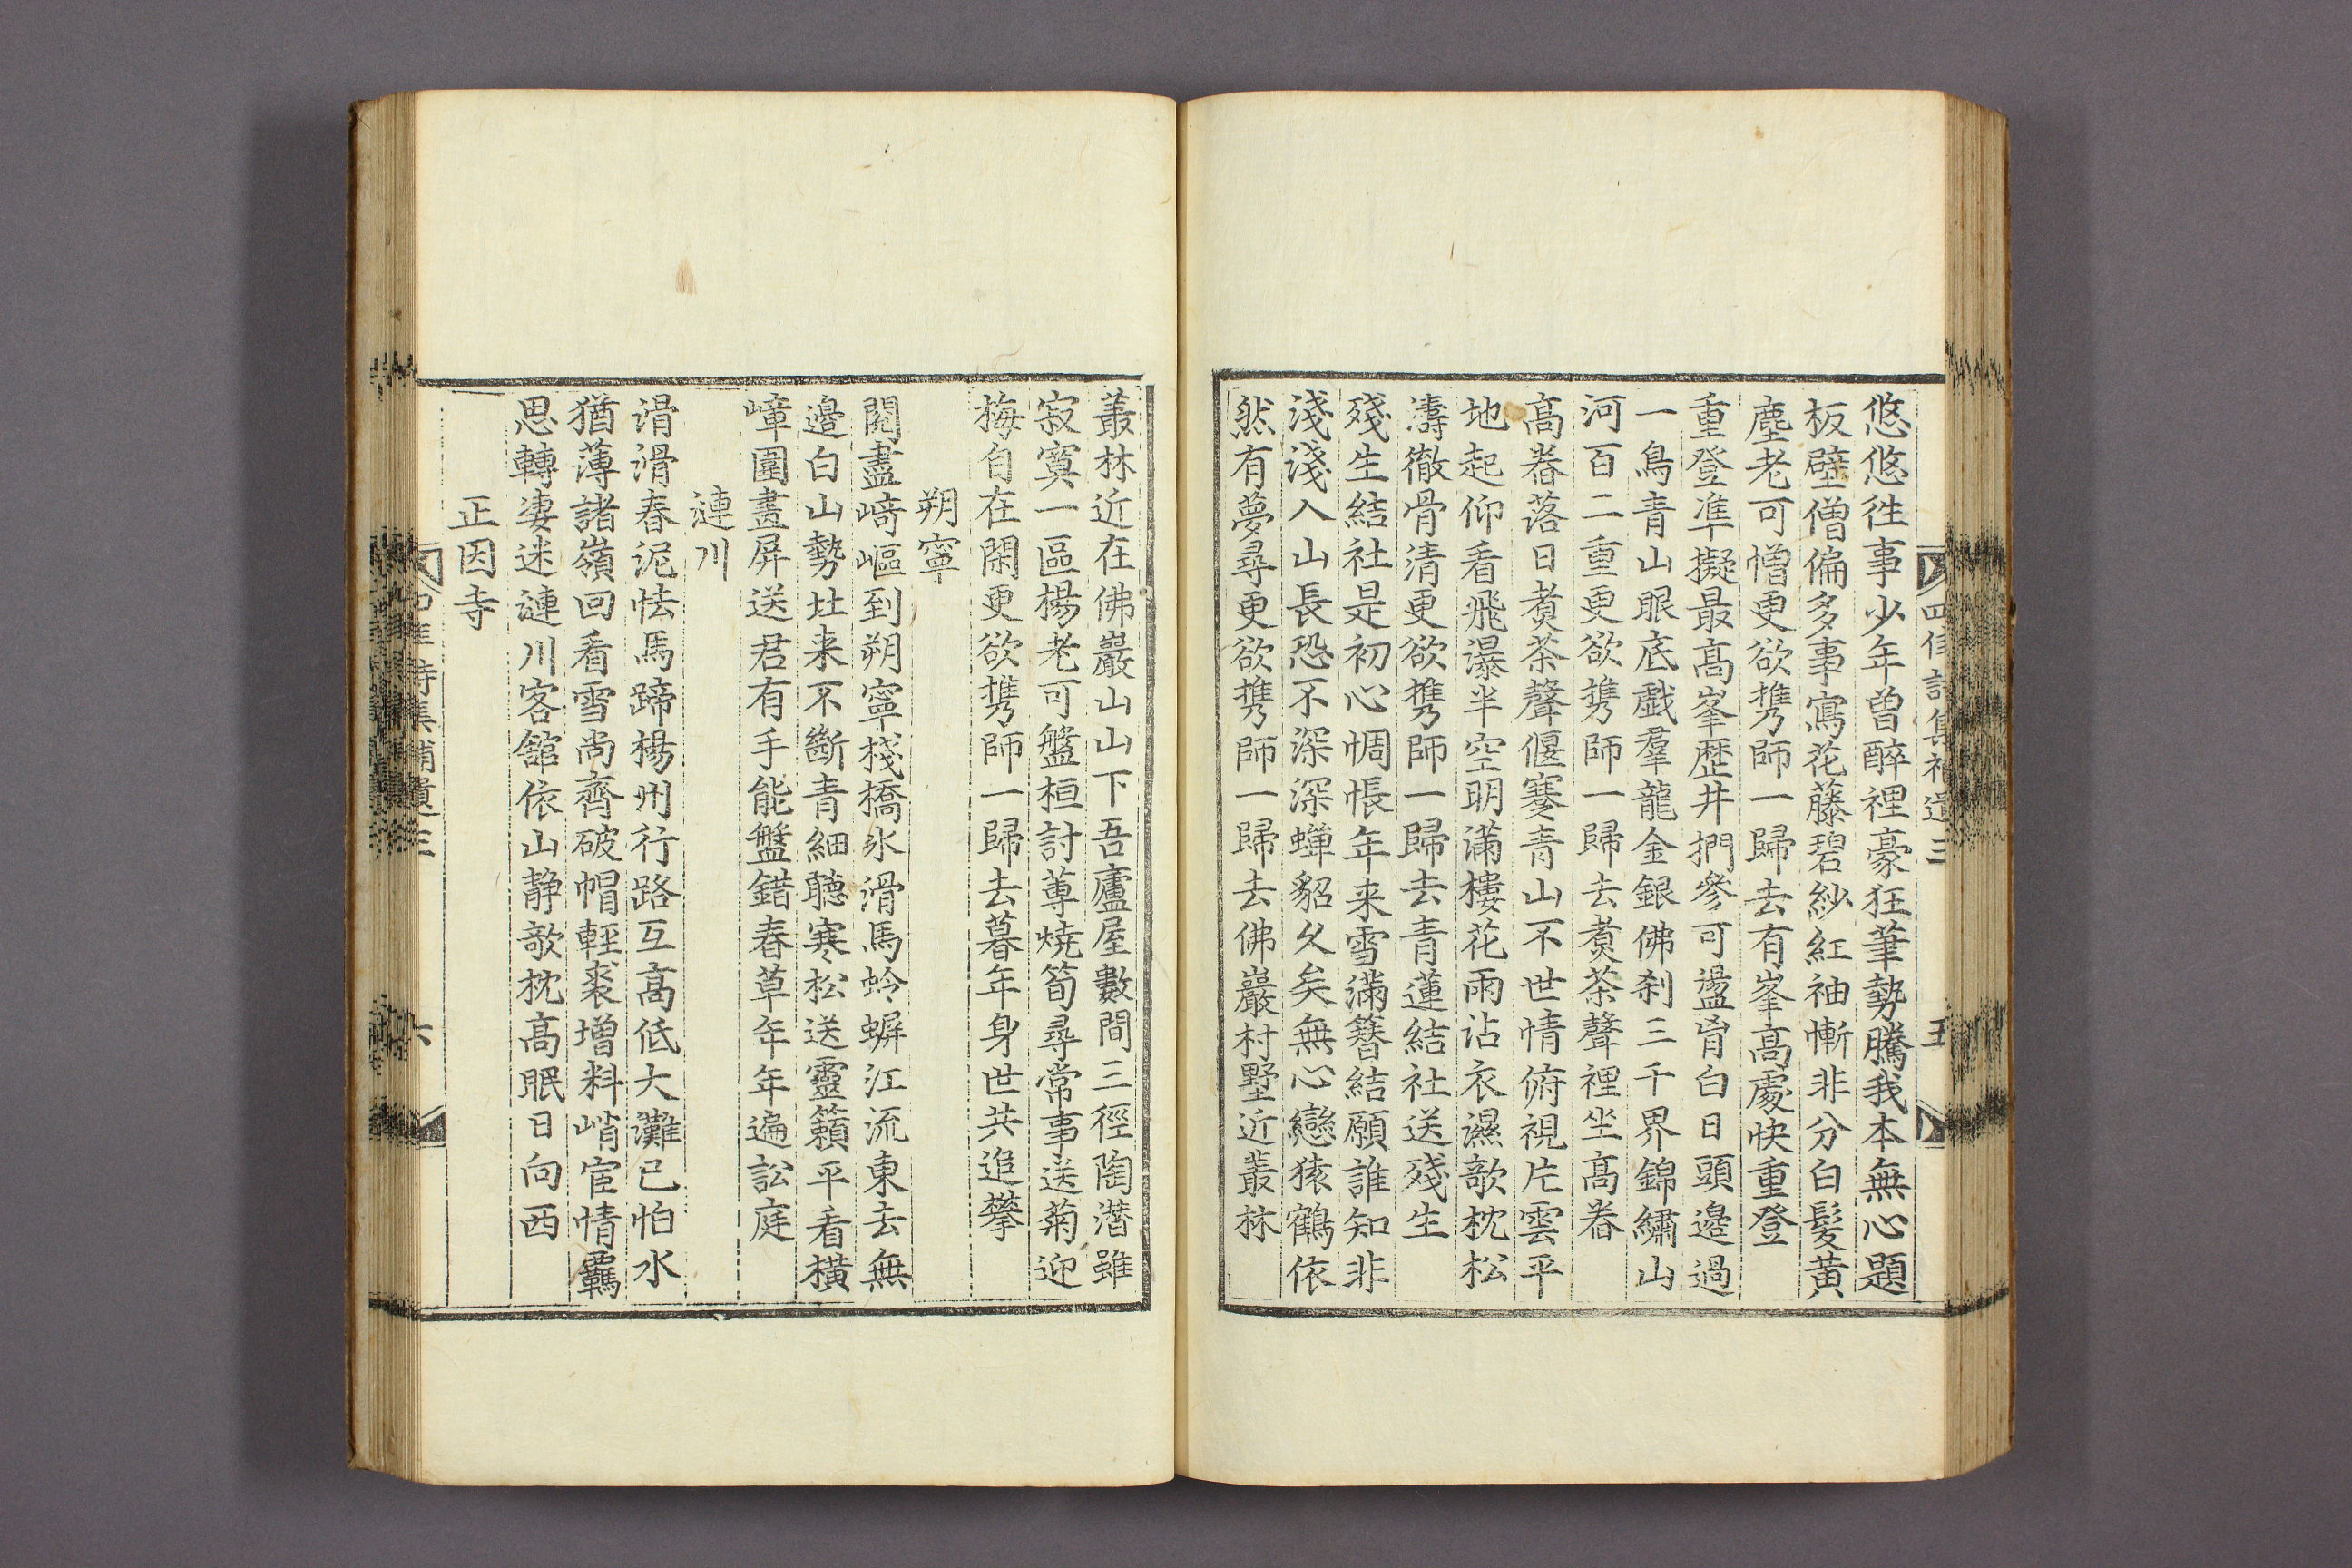 四佳詩集補遺三　五
悠悠徃事少年曾醉裡豪狂筆勢騰我本無心題
板壁僧偏多事寫花藤碧紗紅袖慚非分白髮黃
塵老可憎更欲携師一歸去有峯高處快重登
重登準擬最高峯歷井捫參可盪胷白日頭邊過
一鳥青山眼底戱羣龍金銀佛刹三千界錦繡山
河百二重更欲携師一歸去煑茶聲裡坐高舂
高舂落日煑茶聲偃蹇青山不世情俯視片雲平
地起仰看飛瀑半空明滿樓花雨沾衣濕欹枕松
濤徹骨清更欲携師一歸去青蓮結社送殘生
殘生結社是初心惆悵年来雪滿簪結願誰知非
淺淺入山長恐不深深蟬貂久矣無心戀猿鶴依
然有夢尋更欲携師一歸去佛巖村墅近叢林
叢林近在佛巖山山下吾廬屋數間三徑陶潛雖
寂寞一區楊老可盤桓討蓴燒筍尋常事送菊迎
梅自在閑更欲携師一歸去暮年身世共追攀
朔寧
閱盡﨑嶇到朔寧棧橋氷滑馬蛉蜅江流東去無
邊白山勢北来不斷青細聽寒松送靈籟平看橫
嶂圍畫屏送君有手能盤錯春草年年遍訟庭
漣川
滑滑春泥怯馬蹄楊州行路互高低大灘已怕水
猶薄諸嶺回看雪尚齊破帽輕裘增料峭宦情羈
思轉凄迷漣川客舘依山静欹枕高眠日向西
正因寺
四佳詩集補遺三　六